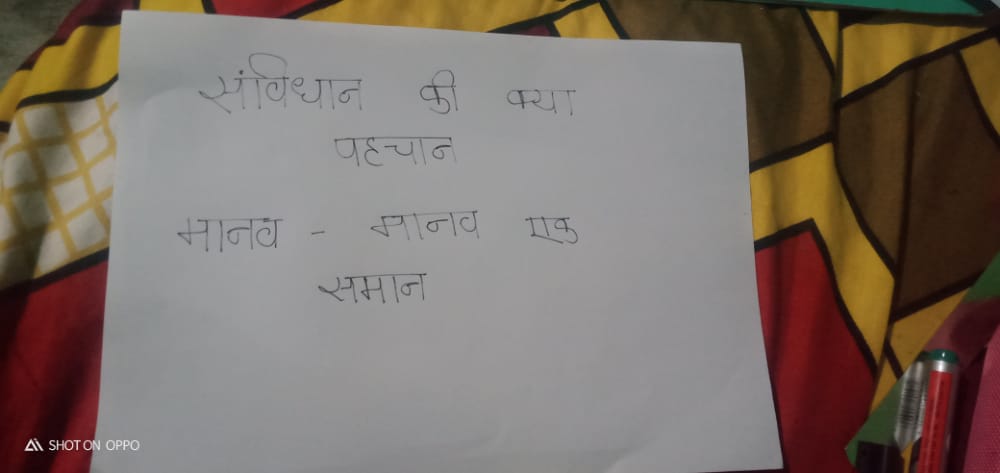 संविधान की क्या
पहचान
मानव - मानव एक
समान
SHOT ON OPPO